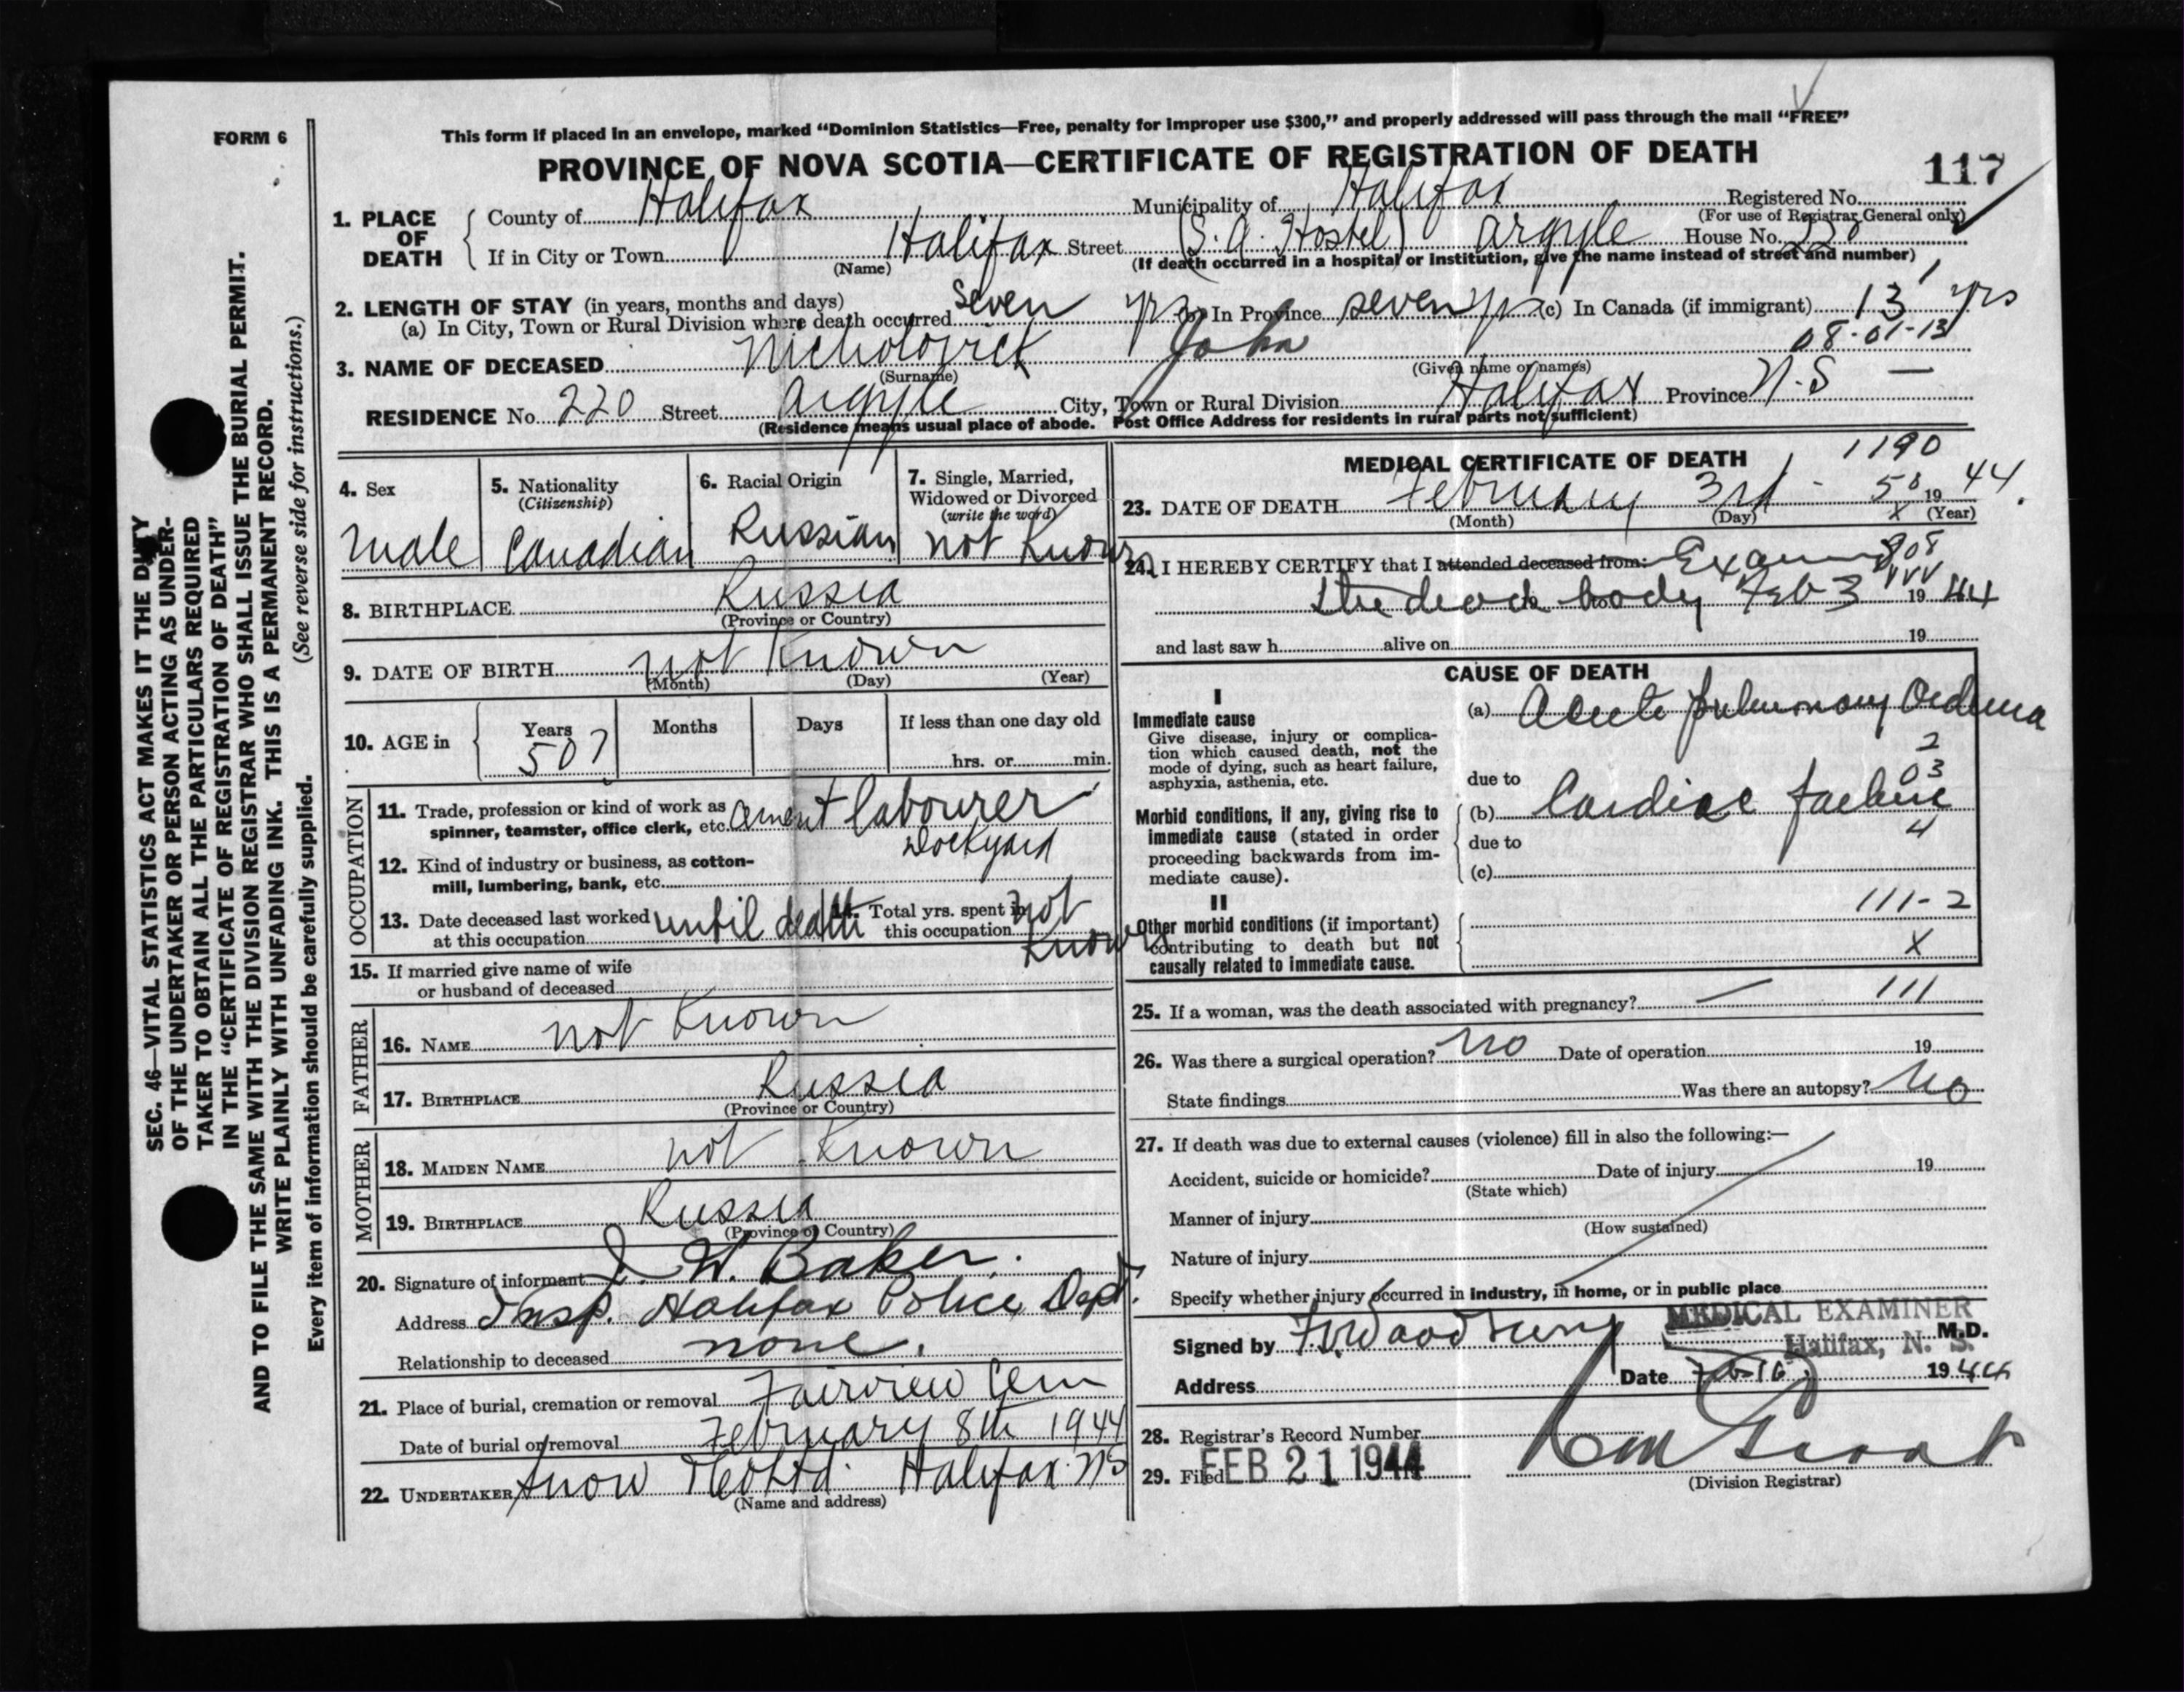 FORM 6
This form if placed in an envelope, marked “Dominion Statistics—Free, penalty for improper use $300,” and properly addressed will pass through the mail “FREE”
PROVINCE OF NOVA SCOTIA—CERTIFICATE OF REGISTRATION OF DEATH
117
1. PLACE OF DEATH
County of Halifax Municipality of Halifax Registered No.
(For use of Registrar General only)
If in City or Town Halifax Street (S.A. Hostel) Argyle House No. 220
(Name) (If death occurred in a hospital or institution, give the name instead of street and number)
2. LENGTH OF STAY (in years, months and days)
(a) In City, Town or Rural Division where death occurred seven yrs (b) In Province seven yrs (c) In Canada (if immigrant) 13 yrs
08-01-13
3. NAME OF DECEASED John
(Surname) (Given name or names)
RESIDENCE No. 220 Street Argyle City, Town or Rural Division Halifax Province N.S —
(Residence means usual place of abode. Post Office Address for residents in rural parts not sufficient)
4. Sex
male
5. Nationality
(Citizenship)
Canadian
6. Racial Origin
Russian
7. Single, Married,
Widowed or Divorced
(write the word)
not Known
8. BIRTHPLACE Russia
(Province or Country)
9. DATE OF BIRTH not Known
(Month) (Day) (Year)
10. AGE in
Years Months Days If less than one day old
50? hrs. or min.
OCCUPATION
11. Trade, profession or kind of work as
spinner, teamster, office clerk, etc. cement labourer
Dockyard
12. Kind of industry or business, as cotton-
mill, lumbering, bank, etc.
13. Date deceased last worked
at this occupation until death
14. Total yrs. spent in
this occupation not Known
15. If married give name of wife
or husband of deceased
FATHER
16. NAME not Known
17. BIRTHPLACE Russia
(Province or Country)
MOTHER
18. MAIDEN NAME not Known
19. BIRTHPLACE Russia
(Province or Country)
20. Signature of informant J. W. Baker.
Address Insp. Halifax Police Dept.
Relationship to deceased none.
21. Place of burial, cremation or removal Fairview Cem
Date of burial or removal February 8th 1944
22. UNDERTAKER Snow & Co Ltd. Halifax NS
(Name and address)
MEDICAL CERTIFICATE OF DEATH
1190
23. DATE OF DEATH February 3rd 50 19 44.
(Month) (Day) X (Year)
24. I HEREBY CERTIFY that I attended deceased from: Examined 908
the dead body Feb 3 19 44
and last saw h alive on 19
CAUSE OF DEATH
I
Immediate cause
Give disease, injury or complica-
tion which caused death, not the
mode of dying, such as heart failure,
asphyxia, asthenia, etc.
(a) Acute pulmonary Oedema
2
03
due to
Morbid conditions, if any, giving rise to
immediate cause (stated in order
proceeding backwards from im-
mediate cause).
(b) Cardiac failure
4
due to
(c)
II
Other morbid conditions (if important)
contributing to death but not
causally related to immediate cause.
111-2
X
25. If a woman, was the death associated with pregnancy? — 111
26. Was there a surgical operation? No Date of operation 19
State findings Was there an autopsy? No
27. If death was due to external causes (violence) fill in also the following:—
Accident, suicide or homicide? Date of injury 19
(State which)
Manner of injury
(How sustained)
Nature of injury
Specify whether injury occurred in industry, in home, or in public place
MEDICAL EXAMINER
Signed by M.D.
Halifax, N. S.
Address Date Feb 16 1944
28. Registrar's Record Number
29. Filed FEB 21 1944
(Division Registrar)
SEC. 46—VITAL STATISTICS ACT MAKES IT THE DUTY
OF THE UNDERTAKER OR PERSON ACTING AS UNDER-
TAKER TO OBTAIN ALL THE PARTICULARS REQUIRED
IN THE “CERTIFICATE OF REGISTRATION OF DEATH”
AND TO FILE THE SAME WITH THE DIVISION REGISTRAR WHO SHALL ISSUE THE BURIAL PERMIT.
WRITE PLAINLY WITH UNFADING INK. THIS IS A PERMANENT RECORD.
Every item of information should be carefully supplied. (See reverse side for instructions.)